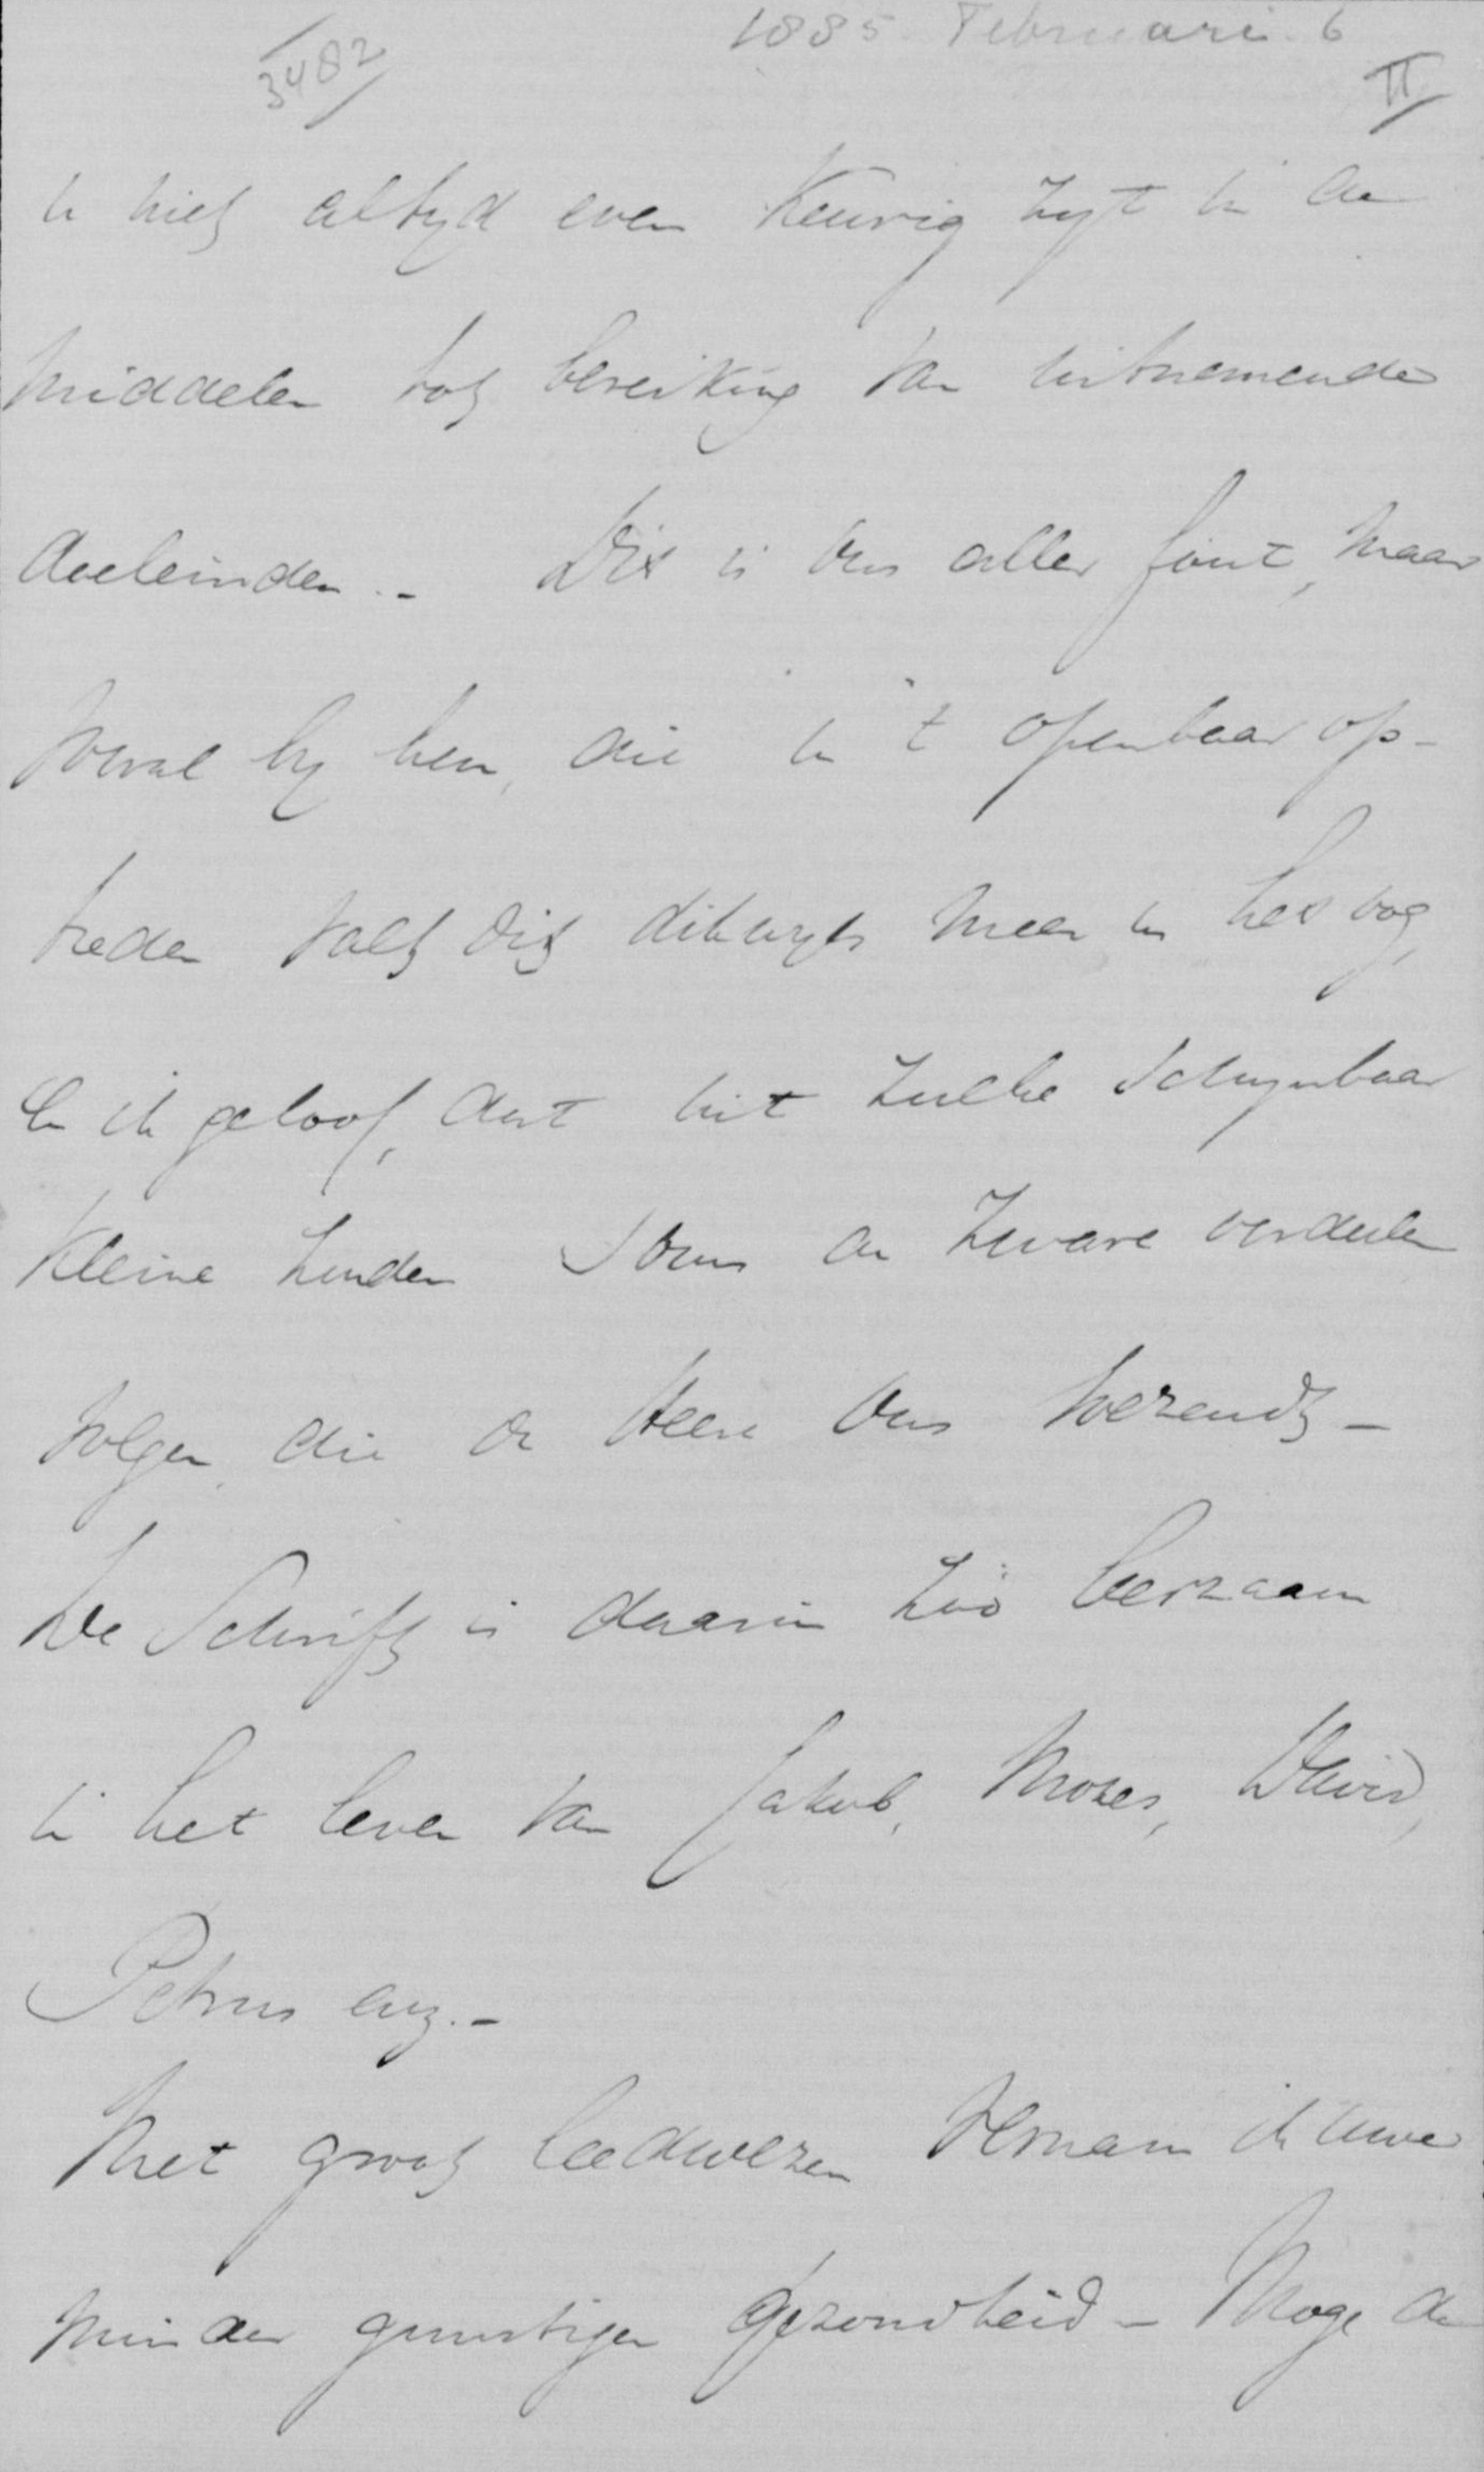 1885 Februari 6
3482
II
U niet altyd even keurig zyt in de
middelen tot bereiking van uitnemende
doeleinden. - Dit is ons aller fout, maar
vooral by hen, die in 't openbaar op-
treden valt dit dikwyls meer in het oog,
en ik geloof, dat uit zulke schynbaar
kleine zonden soms de zware oordeelen
volgen, die de Heere ons toezendt -
De Schrift is daarin zoo leerzaam
in het leven van Jakob, Mozes, David,
Petrus enz. -
Met groot leedwezen vernam ik uwe
minder gunstigen gezondheid - Moge de